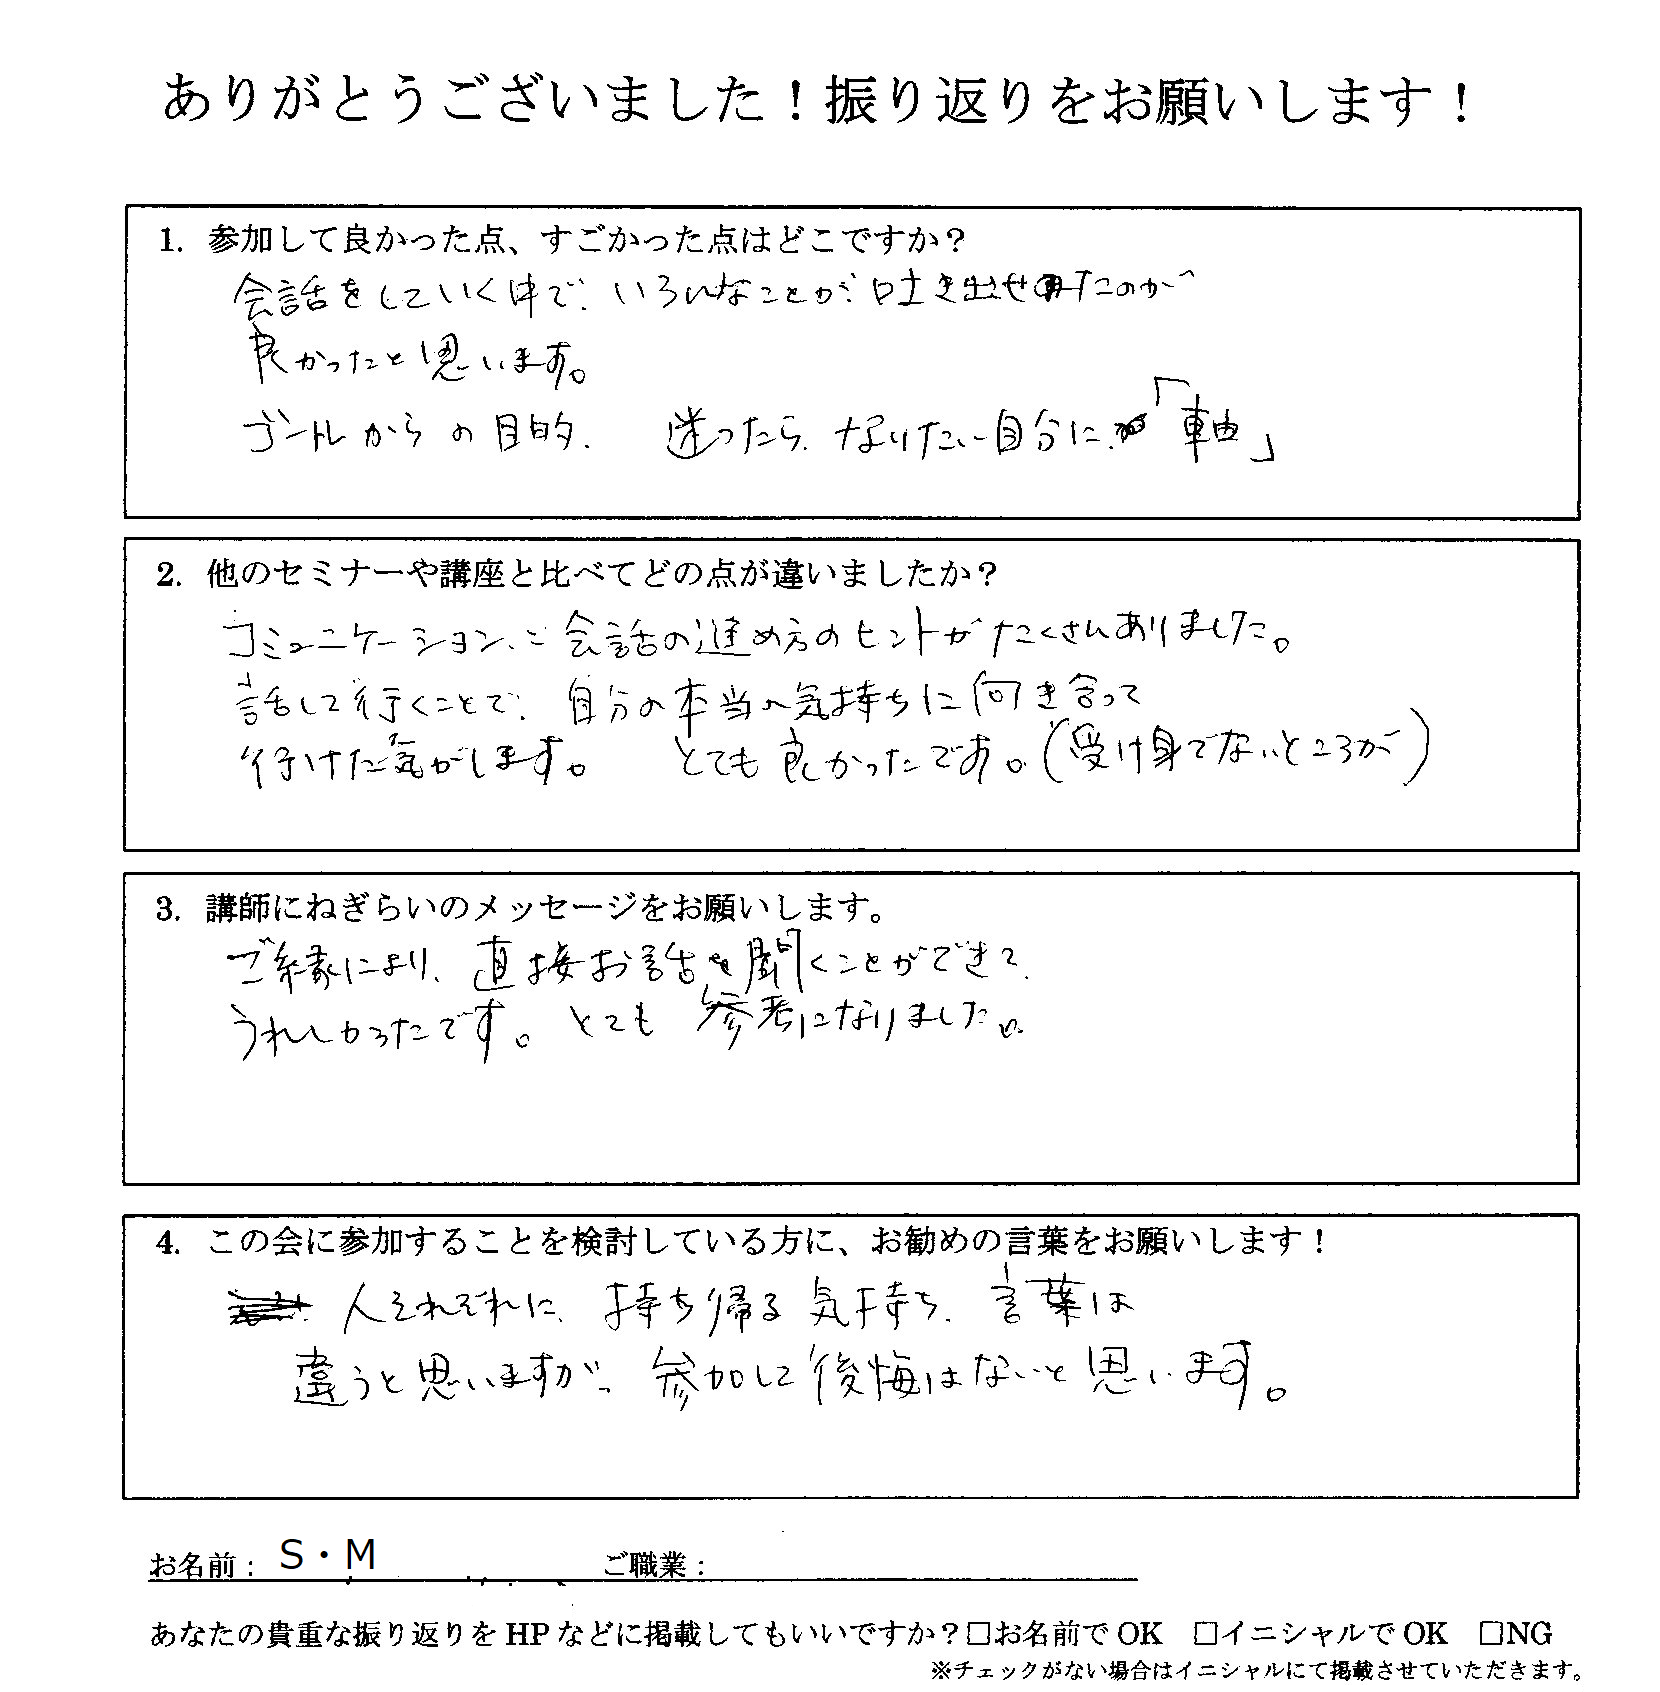 ありがとうございました！振り返りをお願いします！
1. 参加して良かった点、すごかった点はどこですか？
会話をしていく中で、いろんなことが吐き出せたのが
良かったと思います。
ゴールからの目的、迷ったら、なりたい自分に、「軸」
2. 他のセミナーや講座と比べてどの点が違いましたか？
コミュニケーション、会話の進め方のヒントがたくさんありました。
話して行くことで、自分の本当の気持ちに向き合って
行けた気がします。 とても良かったです。（受け身でないところが）
3. 講師にねぎらいのメッセージをお願いします。
ご縁により、直接お話を聞くことができて、
うれしかったです。とても参考になりました。
4. この会に参加することを検討している方に、お勧めの言葉をお願いします！
人それぞれに、持ち帰る気持ち、言葉は
違うと思いますが、参加して後悔はないと思います。
お名前： S・M ご職業：
あなたの貴重な振り返りを HP などに掲載してもいいですか？□お名前で OK □イニシャルで OK □NG
※チェックがない場合はイニシャルにて掲載させていただきます。